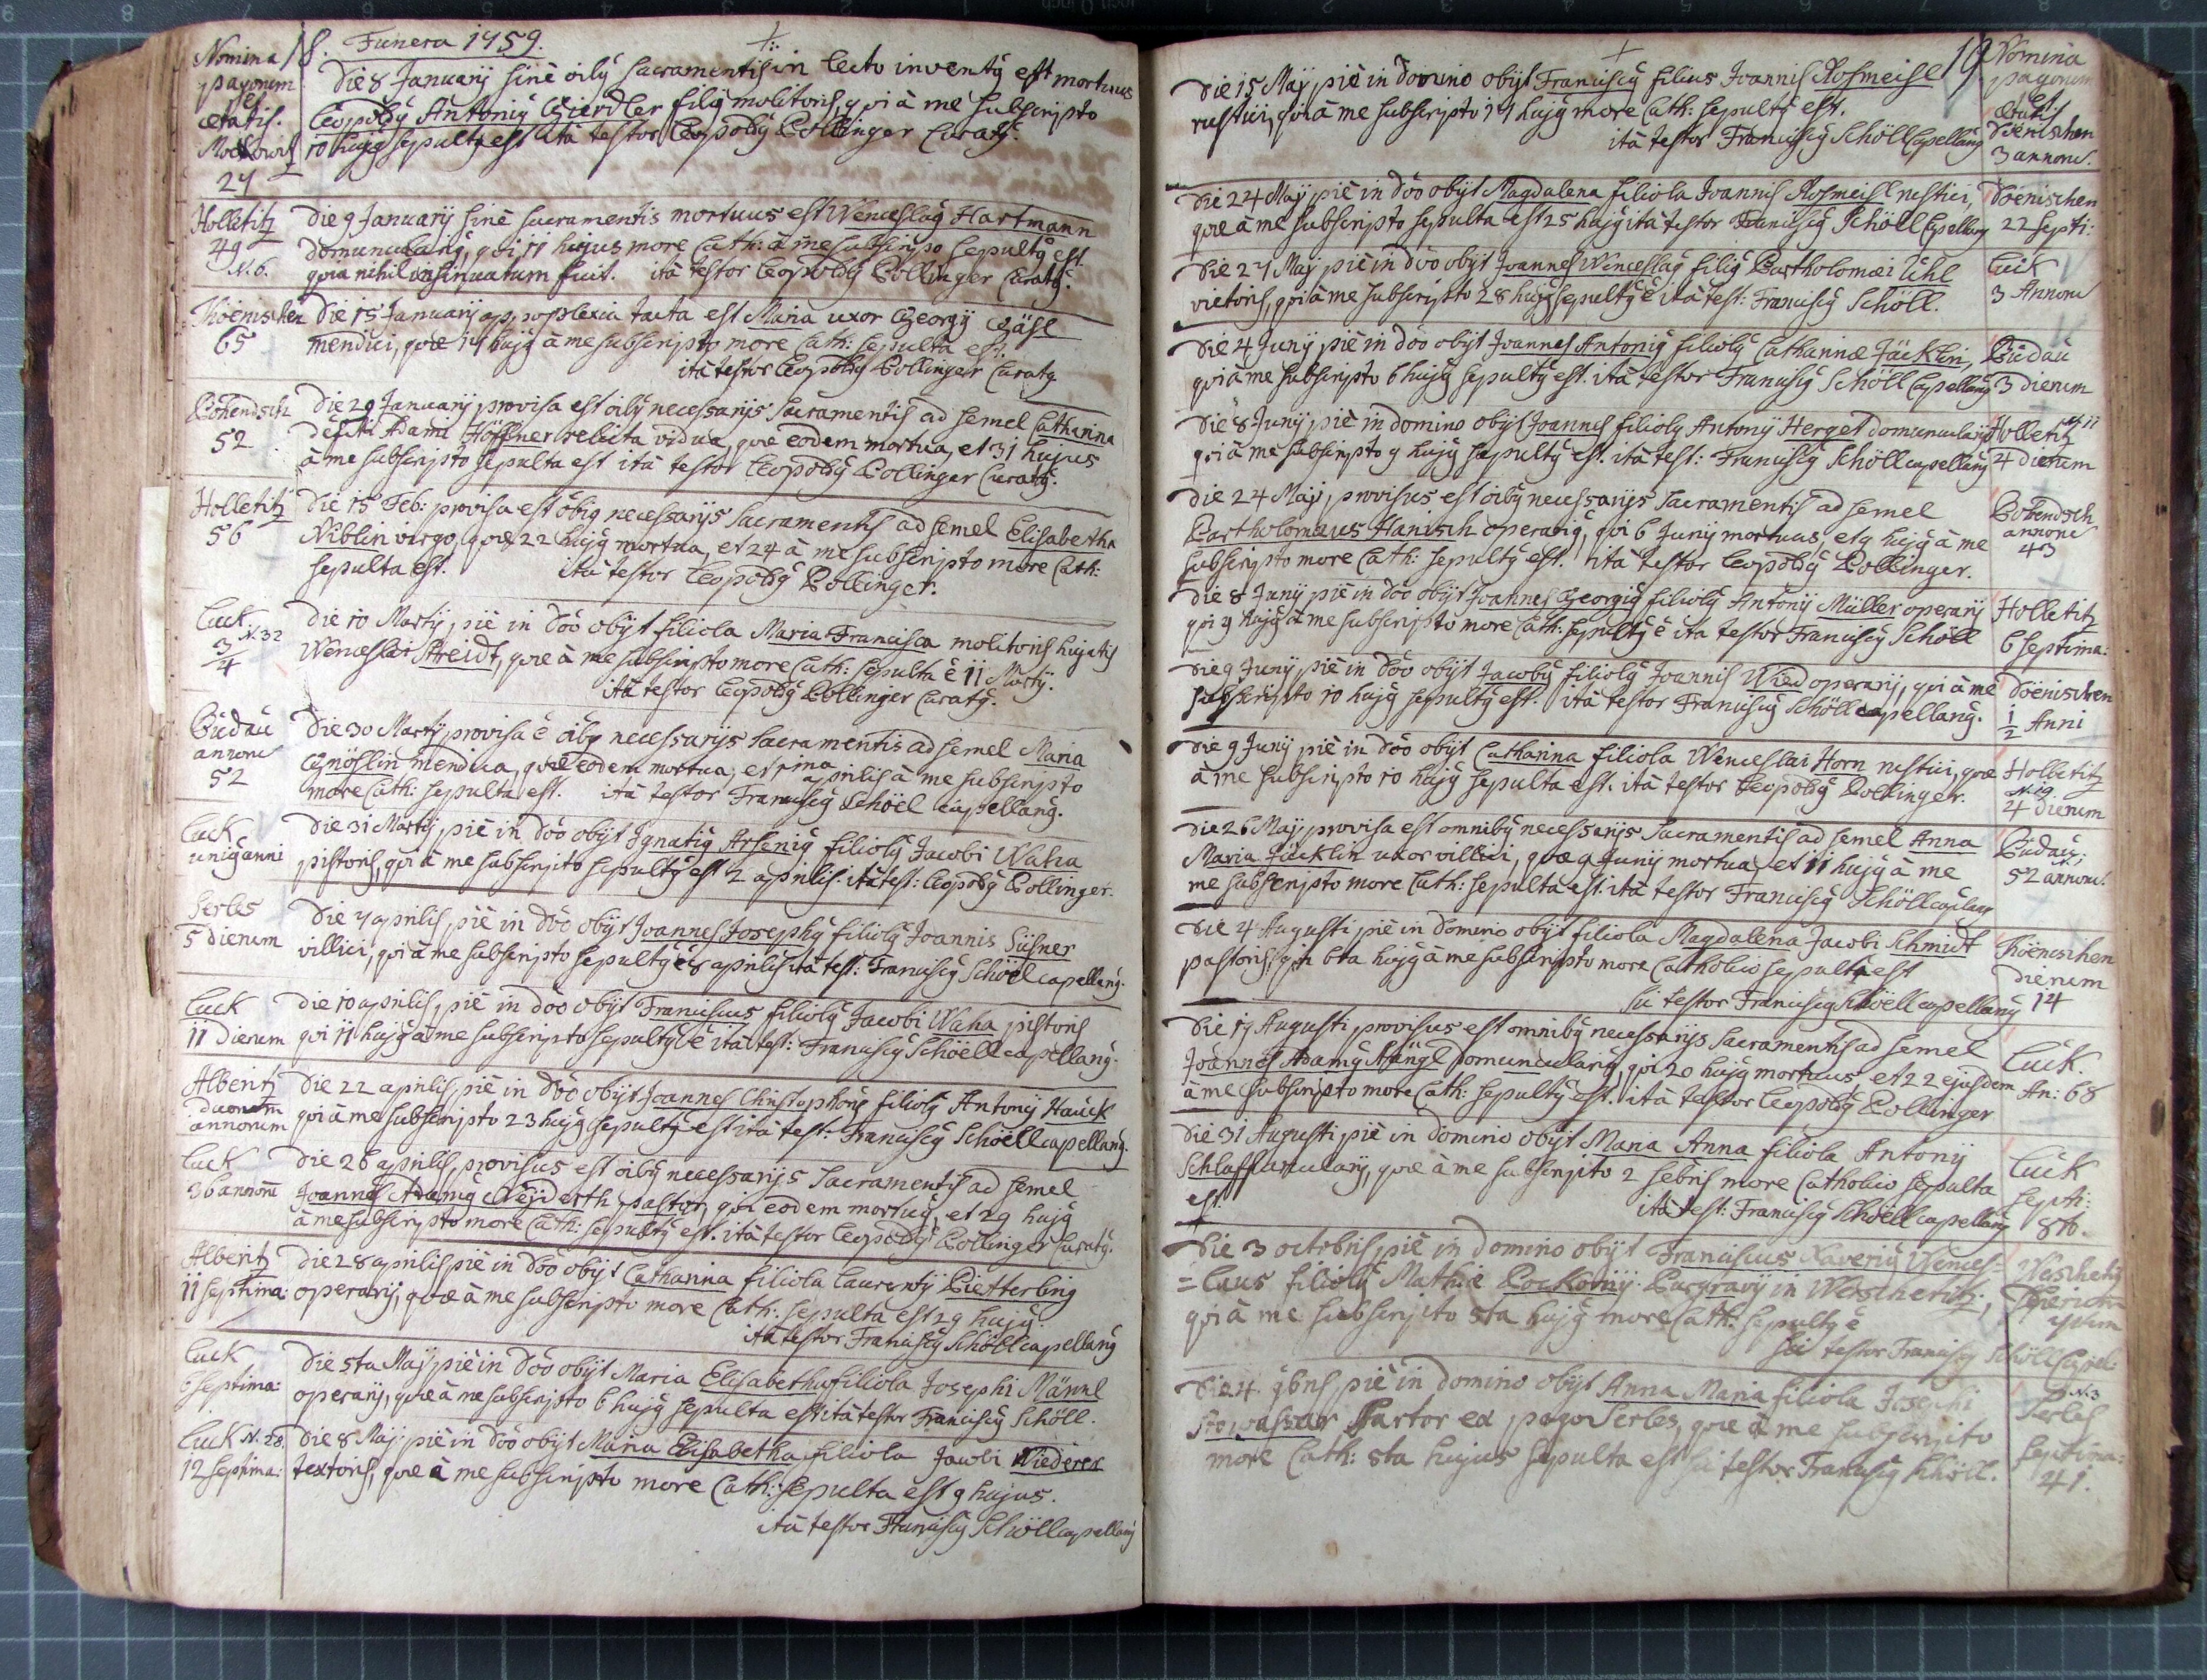 Nomina
pagorum
et
ætatis.
18. Funera 1759.
Die 8 Januarÿ sinè oïbꝰ sacramentis in lecto inventꝰ est mortuus
Leopoldꝰ Antoniꝰ Gierdler filiꝰ molitoris, qui à me subscripto
10 hujꝰ sepultꝰ est ità testor Leopoldꝰ Pollinger Curatꝰ.
27
Holletitz
49
N. 6.
Die 9 Januarÿ sinè sacramentis mortuus est Wenceslaꝰ Hartmann
domunculariꝰ, qui 11 hujus more Cath: à me subscripto sepultꝰ est.
quia nihil insinuatum fuit. ità testor Leopoldꝰ Pollinger Curatꝰ.
Thöenischen
65
Die 15 Januarÿ appoplexia tacta est Maria uxor Georgÿ Gäsl
mendici, quæ 17 hujꝰ à me subscripto more Cath: sepulta est.
ità testor Leopoldꝰ Pollinger Curatꝰ
Pobendsch
52
Die 29 Januarÿ provisa est oïbꝰ necessarÿs Sacramentis ad semel Catharina
defcti Adami Höffner relicta vidua, quæ eodem mortua, et 31 hujus
à me subscripto sepulta est ità testor Leopoldꝰ Pollinger Curatꝰ.
Holletitz
56
Die 15 Feb: provisa est oïbꝰ necessarÿs Sacramentis ad semel Elisabetha
Niblin virgo, quæ 22 hujꝰ mortua, et 24 à me subscripto more Cath:
sepulta est. ità testor Leopoldꝰ Pollinger.
Luck N. 32
3/4
Die 10 Martÿ piè in Dōo obÿt filiola Maria Francisca molitoris hujatis
Wenceslai Streidt, quæ à me subscripto more Cath: sepulta ē 11 Martÿ.
ità testor Leopoldꝰ Pollinger Curatꝰ.
Budau
annoru
52
Die 30 Martÿ provisa ē oïbꝰ necessarÿs Sacramentis ad semel Maria
Gnöslin mendica, quæ eodem mortua, et 1ma aprilis à me subscripto
more Cath: sepulta est. ità testor Franciscꝰ Schöel capellanꝰ.
Luck
uniꝰ anni
Die 31 Martÿ piè in Dōo obÿt Ignatiꝰ Arseniꝰ filiolꝰ Jacobi Waha
pistoris, qui à me subscripto sepultꝰ est 2 aprilis. ità test: Leopoldꝰ Pollinger.
Serles
5 dierum
Die 7 aprilis piè in Dōo obÿt Joannes Josephꝰ filiolꝰ Joannis Süsner
villici, qui à me subscripto sepultꝰ ē 8 aprilis ità test: Franciscꝰ Schöel capellanꝰ.
Luck
11 Dierum
Die 10 aprilis, piè in dōo obÿt Franciscus filiolꝰ Jacobi Waha pistoris
qui 11 hujꝰ à me subscripto sepultꝰ ē ità test: Franciscꝰ Schöell capellanꝰ.
Alberitz
duorum
annorum
Die 22 aprilis, piè in Dōo obÿt Joannes Christophorꝰ filiolꝰ Antonÿ Hauck
qui à me subscripto 23 hujꝰ sepultꝰ est ità test: Franciscꝰ Schöell capellanꝰ.
Luck
36 annorū
Die 26 aprilis, provisus est oïbꝰ necessarÿs Sacramentis ad semel
Joannes Adamꝰ Nejderth pastor, qui eodem mortuꝰ, et 29 hujꝰ
à me subscripto more Cath: sepultꝰ est. ità testor Leopoldꝰ Pollinger Curatꝰ.
Alberitz
11 septima:
Die 28 aprilis piè in Dōo obÿt Catharina filiola Laurentÿ Pietterling
operarÿ, quæ à me subscripto more Cath: sepulta est 29 hujꝰ.
ità testor Franciscꝰ Schöll capellanꝰ
Luck
6 septima:
Die 5ta Maÿ piè in Dōo obÿt Maria Elisabetha filiola Josephi Männl
operarÿ, quæ à me subscripto 6 hujꝰ sepulta est ità testor Franciscꝰ Schöll.
Luck N. 28.
12 septima:
Die 8 Maj: piè in Dōo obÿt Maria Elisabetha filiola Jacobi Wiederer
textoris, quæ à me subscripto more Cath: sepulta est 9 hujus.
ità testor Franciscꝰ Schöll capellanꝰ
19
Nomina
pagorum
ætatis
Döenischen
3 annoru.
Die 15 Maÿ piè in domino obÿt Franciscꝰ filius Joannis Rosmeisl
rustici, qui à me subscripto 17 hujꝰ more Cath: sepultꝰ est.
ità testor Franciscꝰ Schöll Capellanꝰ
Die 24 Maÿ piè in dōo obÿt Magdalena filiola Joannis Rosmeisl rustici,
quæ à me subscripto sepulta est 25 hujꝰ ità testor Franciscꝰ Schöell Capellanꝰ
Döenischen
22 septi:
Die 27 Maÿ piè in dōo obÿt Joannes Wenceslaꝰ filiꝰ Bartholomæi Uhl
vietoris, qui à me subscripto 28 hujꝰ sepultꝰ ē ità test: Franciscꝰ Schöll.
Luck
3 Annoru
Die 4 Junÿ piè in dōo obÿt Joannes Antoniꝰ filiolꝰ Catharinæ Jäcklin,
qui à me subscripto 6 hujꝰ sepultꝰ est. ità testor Franciscꝰ Schöll Capellanꝰ
Budau
3 dierum
Die 8 Junÿ piè in domino obÿt Joannes filiolꝰ Antonÿ Herget domuncularÿ
qui à me subscripto 9 hujꝰ sepultꝰ est. ità test: Franciscꝰ Schöll capellanꝰ
Holletitz N 11
4 dierum
Die 24 Maÿ, provisus est oïbꝰ necessarÿs Sacramentis ad semel
Bartholomæus Hanisch operariꝰ, qui 6 Junÿ mortuus, et 9 hujꝰ à me
subscripto more Cath: sepultꝰ est. ità testor Leopoldꝰ Pollinger.
Pobendsch
annoru
43
Die 8 Junÿ piè in dōo obÿt Joannes Georgiꝰ filiolꝰ Antonÿ Müller operarÿ
qui 9 hujꝰ à me subscripto more Cath: sepultꝰ ē ità testor Franciscꝰ Schöll
Holletitz
6 septima:
Die 9 Junÿ piè in Dōo obÿt Jacobꝰ filiolꝰ Joannis Wied operarÿ, qui à me
subscripto 10 hujꝰ sepultꝰ est. ità testor Franciscꝰ Schöll capellanꝰ.
Döenischen
1/2 Anni
Die 9 Junÿ piè in Dōo obÿt Catharina filiola Wenceslai Horn rustici, quæ
à me subscripto 10 hujꝰ sepulta est. ità testor Leopoldꝰ Pollinger.
Holletitz
N. 19.
4 dierum
Die 26 Maÿ provisa est omnibꝰ necessarÿs Sacramentis ad semel Anna
Maria Jäcklin uxor villici, quæ 9 Junÿ mortua, et 11 hujꝰ à me
me subscripto more Cath: sepulta est. ità testor Franciscꝰ Schöll capellanꝰ
Budau;
52 annoru.
Die 4 Augusti piè in Domino obÿt filiola Magdalena Jacobi Schmidt
pastoris, qui 6ta hujꝰ à me subscripto more Catholico sepulta est
sic testor Franciscꝰ Schöell capellanꝰ
Thöenischen
dierum
14
Die 19 Augusti provisus est omnibꝰ necessarÿs Sacramentis ad semel
Joannes Adamꝰ domunculariꝰ, qui 20 hujꝰ mortuus, et 22 ejusdem
à me subscripto more Cath: sepultꝰ est. ità testor Leopoldꝰ Pollinger
Luck.
An: 68
Die 31 Augusti piè in domino obÿt Maria Anna filiola Antonÿ
quæ à me subscripto 2 sebris more Catholico sepulta
est. ità test: Franciscꝰ Schöell capellanꝰ
Luck
septi:
8to.
Die 3 octobris, piè in domino obÿt Franciscus Xaveriꝰ Wences-
=laus filiolꝰ Mathiæ Pockornÿ Purgravÿ in Wescheritz,
qui à me subscripto 5ta hujꝰ more Cath: sepultꝰ ē
sic testor Franciscꝰ Schöll Capel:
Die 4. 9bris piè in domino obÿt Anna Maria filiola Josephi
Stowasser Sartor ex pago Serles, quæ à me subscripto
more Cath: 5ta hujus sepulta est sic testor Franciscꝰ Schöll.
N. 3
Serles
septima:
41.